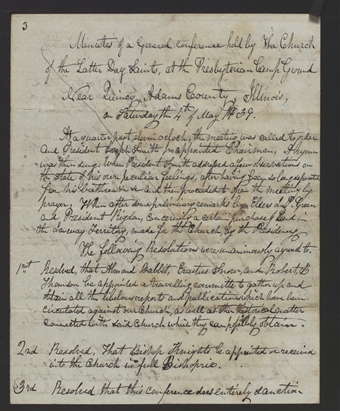 3
Minutes of a General conference held by the Church
of the Latter Day Saints, at the Presbyterian Camp Ground
Near Quincy, Adams County, Illinois,
on Saturday the 4th of May 1839.
At a quarter past eleven oclock, the meeting was called to order
and President Joseph Smith Jr appointed Chairman. A hymn
was then sung, When President Smith addressed a few observations on
the state of his own peculiar feelings, after having been so long separated
from his brethren &c &c and then proceeded to open the meeting by
prayer. When after some preliminary remarks by Elder J. P. Green
and President Rigdon, concerning a certain purchase of Land in
the Ioway Territory, made for the Church, by the Presidency,
The following Resolutions were unanimously agreed to.
1st Resolved, that Almond Babbit, Erastus Snow, and Robert B
Thompson be appointed a travelling committee to gather up and
obtain all the libelous reports and publications which have been
circulated against our Church, as well as other historical matter
connected with said Church which they can possibly obtain.
2nd Resolved, That Bishop Knight be appointed or received
into the Church in full Bishopric.
3rd Resolved that this conference does entirely sanction